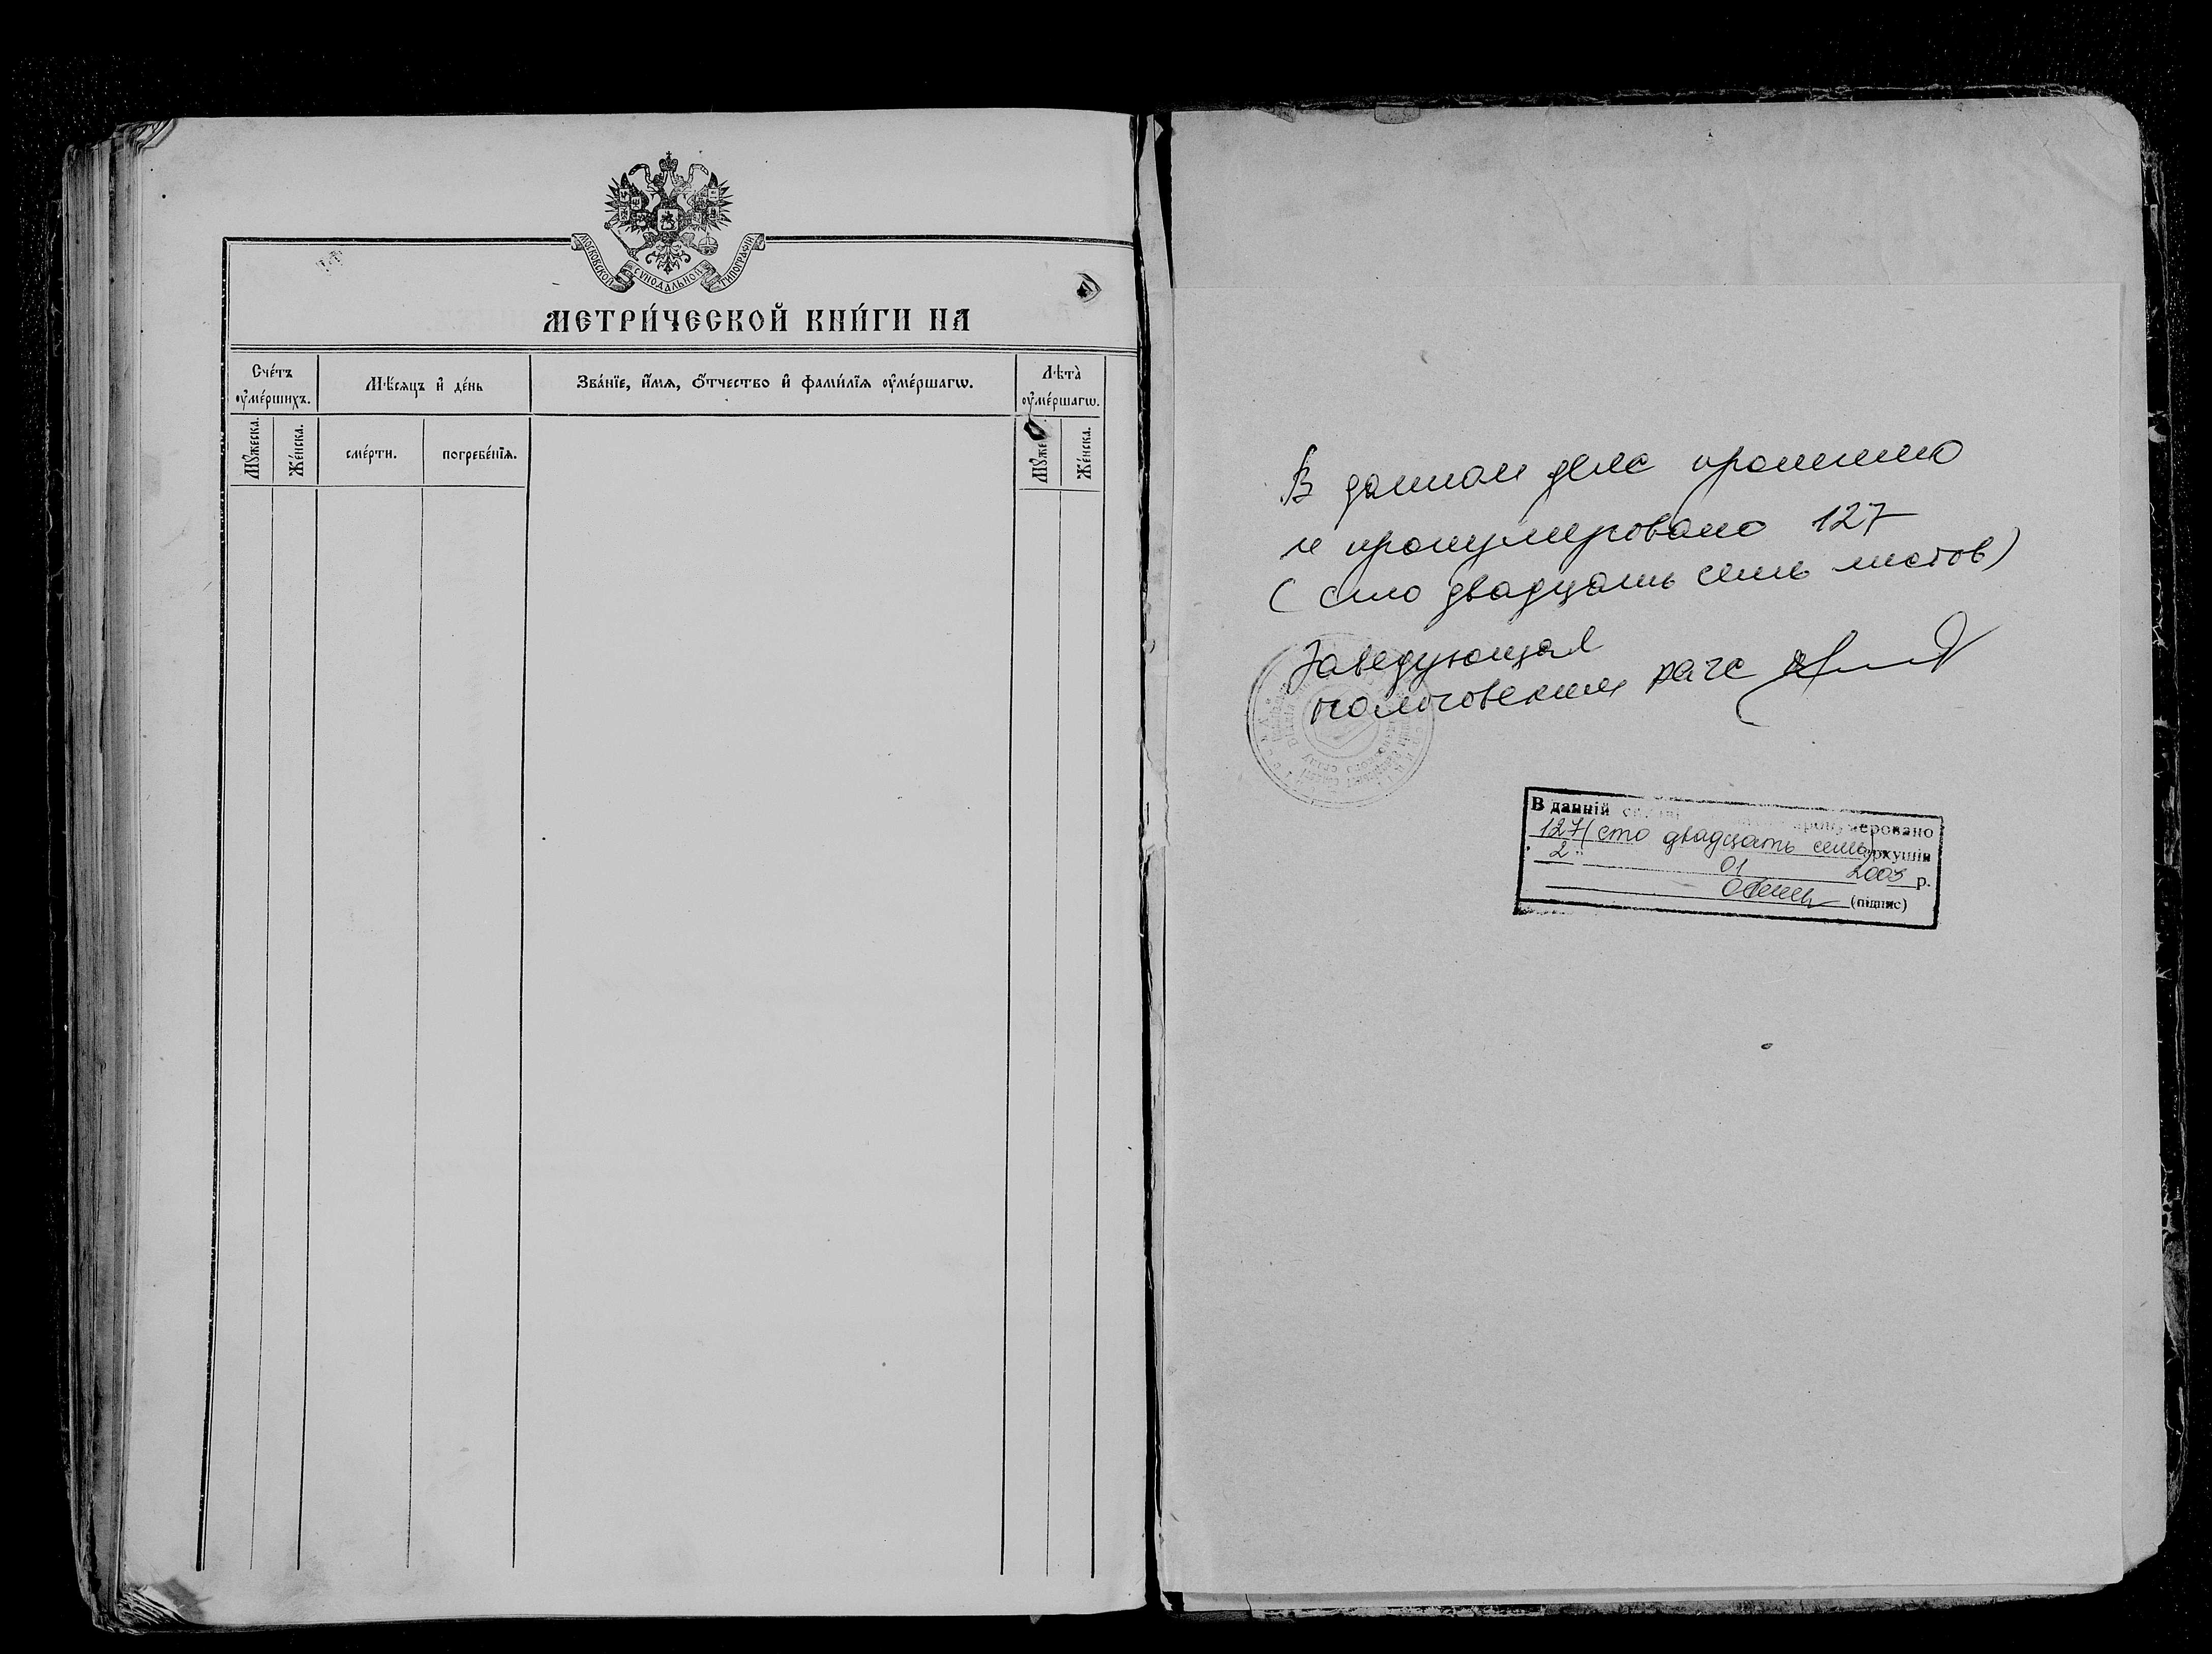 МОСКОВСКОЙ СѴНОДАЛЬНОЙ ТИПОГРАФІИ
МЕТРИ́ЧЕСКОЙ КНИ́ГИ НА
Сче́тъ ᲂу҆ме́ршихъ.
Мѣ́сяцъ и҆ де́нь
Зва́нїе, и҆́мя, ѻ҆́тчество и҆ фами́лїя ᲂу҆ме́ршагѡ.
Лѣта̀ ᲂу҆ме́ршагѡ.
Мꙋ́жеска.
Же́нска.
сме́рти.
погребе́нїя.
Мꙋ́же
Же́нска.
В данном деле прошито
и пронумеровано 127
(сто двадцать семь листов)
Заведующая
рагс
В данній пронумеровано
127 (сто двадцать семь) аркушів
2 01 2003 р.
(підпис)